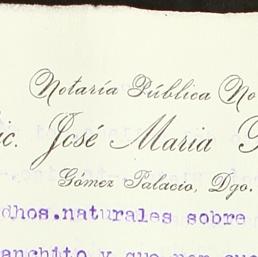 Notaría Pública No
ic. José Maria
Gómez Palacio, Dgo.
dhos.naturales sobre
anchito y que por